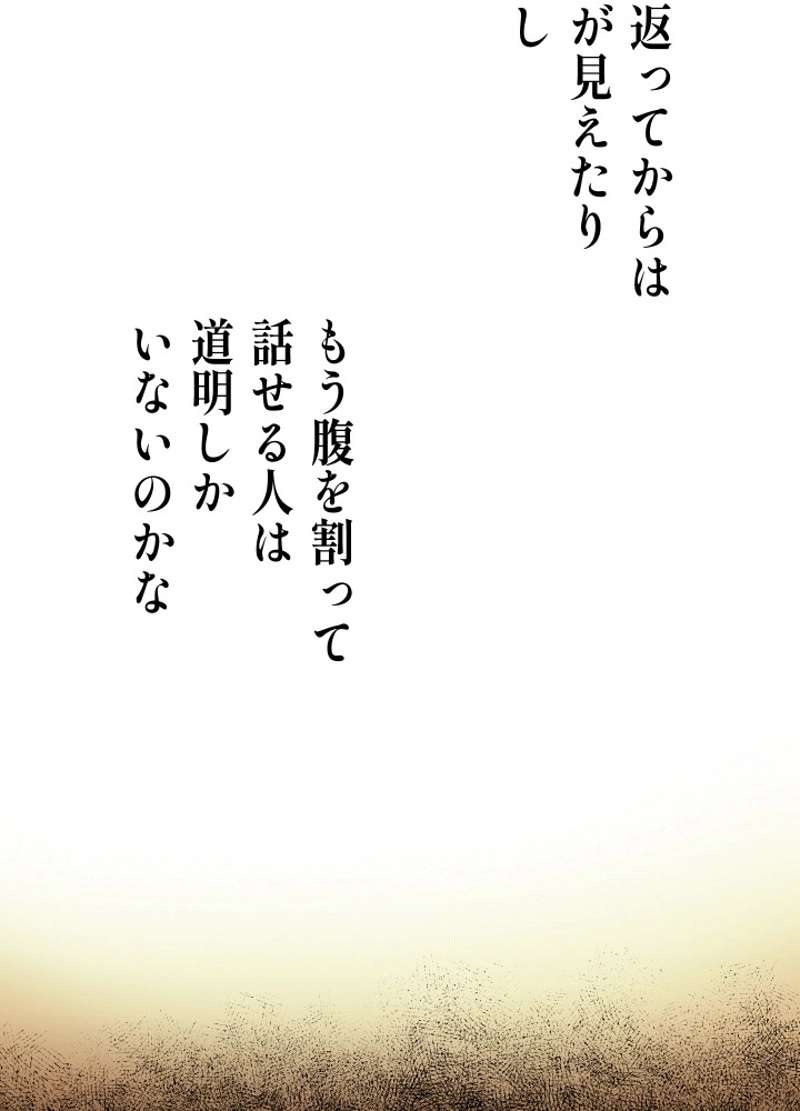 返ってからは
が見えたり
し
もう腹を割って
話せる人は
道明しか
いないのかな